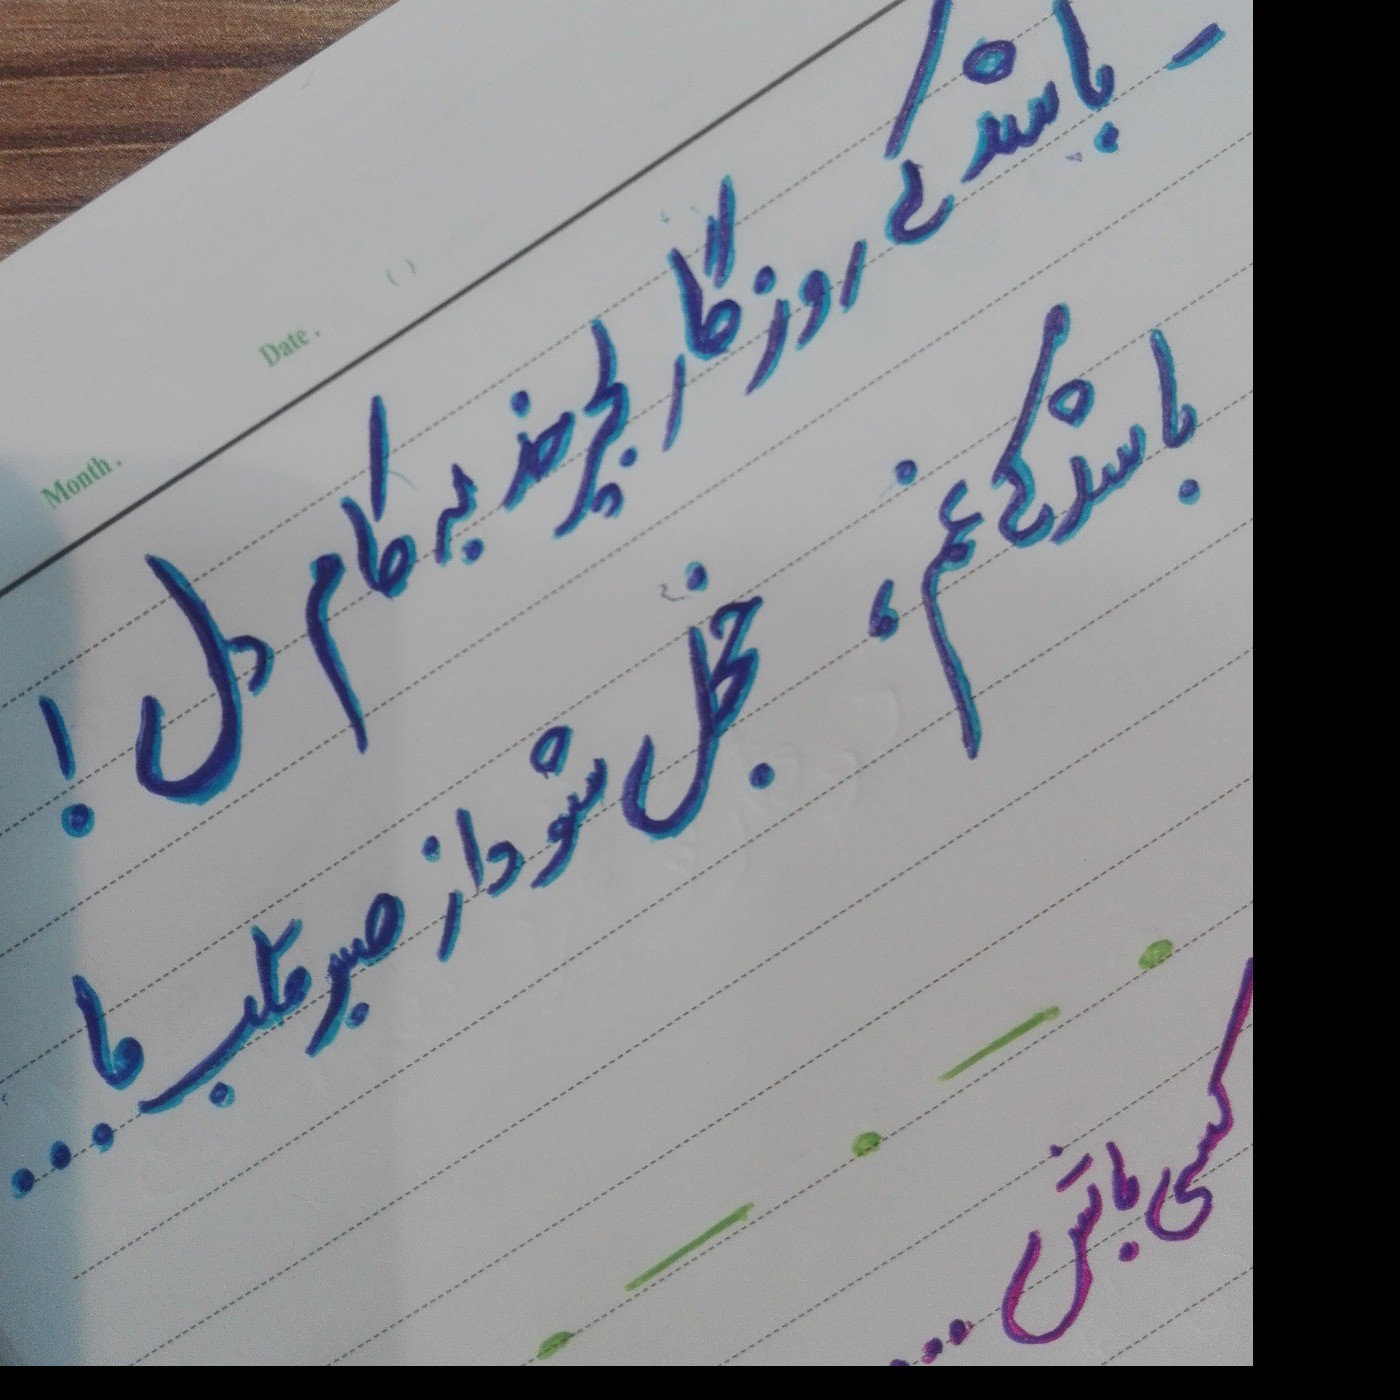 Month. Date. ( )
- باشد که روزگار بچرخد به کام دل !
باشد که غم، خجل شود از صبر قلب ما ...
کسی باش ...